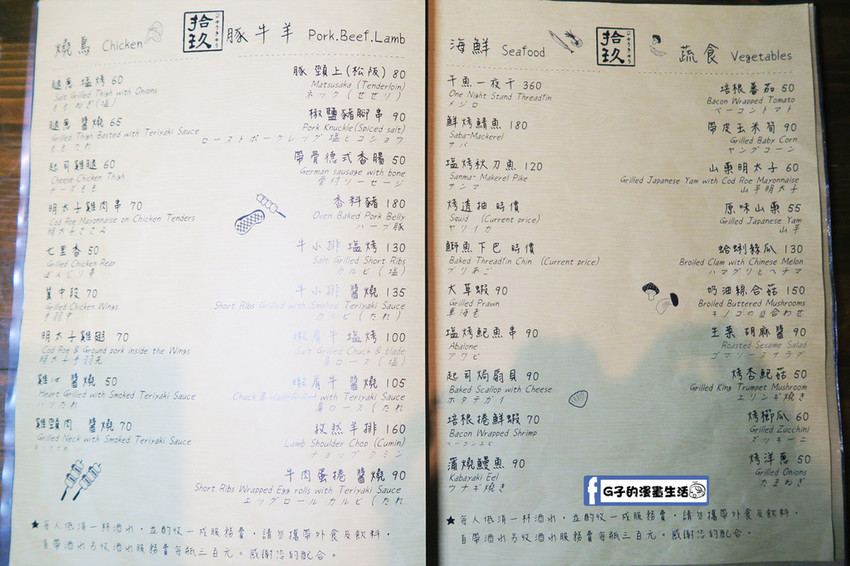 燒鳥 Chicken
拾玖
豚牛羊 Pork.Beef.Lamb
腿蔥 塩烤 60
Salt Grilled Thigh with Onions
腿蔥 醬燒 65
Grilled Thigh Basted with Teriyaki Sauce
ももたれ
起司雞腿 60
Cheese Chicken Thigh
チーズもも
明太子雞肉串 70
Cod Roe Mayonnaise on Chicken Tenders
明太子ささみ
七里香 50
Grilled Chicken Rear
ぼんじり串
翼中段 70
Grilled Chicken Wings
手羽中
明太子雞翅 70
Cod Roe & Ground pork inside the Wings
明太子手羽先
雞心 醬燒 50
Heart Grilled with Smoked Teriyaki Sauce
ハツたれ
雞頸肉 醬燒 70
Grilled Neck with Smoked Teriyaki Sauce
豚 頸上(松阪) 80
Matsusaka (Tenderloin)
ネック (せせり)
椒鹽豬腳串 90
Pork Knuckle(Spiced salt)
ローストポークレッグ 塩とコショウ
帶骨德式香腸 50
German sausage with bone
骨付ソーセージ
香料豬 180
Oven Baked Pork Belly
ハーブ豚
牛小排 塩烤 130
Salt Grilled Short Ribs
カルビ (塩)
牛小排 醬燒 135
Short Ribs Grilled with Smoked Teriyaki Sauce
カルビ (たれ)
嫩肩牛 塩烤 100
Salt Grilled Chuck & blade
肩ロース (塩)
嫩肩牛 醬燒 105
Chuck & blade Grilled with Teriyaki Sauce
肩ロース (たれ)
孜然羊排 160
Lamb Shoulder Chop (Cumin)
チョップ クミン
牛肉蛋捲 醬燒 90
Short Ribs Wrapped Egg rolls with Teriyaki Sauce
エッグロール カルビ (たれ)
★每人低消一杯酒水,並酌收一成服務費,請勿攜帶外食及飲料,
自帶酒水另收酒水服務費每瓶三百元。感謝您的配合。
海鮮 Seafood
拾玖
蔬食 Vegetables
千魚一夜干 360
One Night Stand Threadfin
メジロ
鮮烤鯖魚 180
Saba-Mackerel
サバ
塩烤秋刀魚 120
Sanma- Makerel Pike
サンマ
烤透抽 時價
Squid (Current price)
ヤリイカ
鰤魚下巴 時價
Baked Threadfin Chin (Current price)
ブリあご
大草蝦 90
Grilled Prawn
車海老
塩烤鮑魚串 90
Abalone
アワビ
起司焗扇貝 90
Baked Scallop with Cheese
ホタテガイ
培根捲鮮蝦 70
Bacon Wrapped Shrimp
ベーコンエビ
蒲燒鰻魚 90
Kabayaki Eel
ウナギ焼き
培根番茄 50
Bacon Wrapped Tomato
ベーコントマト
帶皮玉米筍 90
Grilled Baby Corn
ヤングコーン
山藥明太子 60
Grilled Japanese Yam with Cod Roe Mayonnaise
山芋明太子
原味山藥 55
Grilled Japanese Yam
山芋
蛤蜊絲瓜 130
Broiled Clam with Chinese Melon
ハマグリとヘチマ
奶油綜合菇 150
Broiled Buttered Mushrooms
キノコの盛合わせ
生菜 胡麻醬 90
Roasted Sesame Salad
ゴマソースサラダ
烤杏鮑菇 50
Grilled King Trumpet Mushroom
エリンギ焼き
烤櫛瓜 60
Grilled Zucchini
ズッキーニ
烤洋蔥 50
Grilled Onions
たまねぎ
f G子的漫畫生活
★每人低消一杯酒水,並酌收一成服務費,請勿攜帶外食及飲料,
自帶酒水另收酒水服務費每瓶三百元。感謝您的配合。